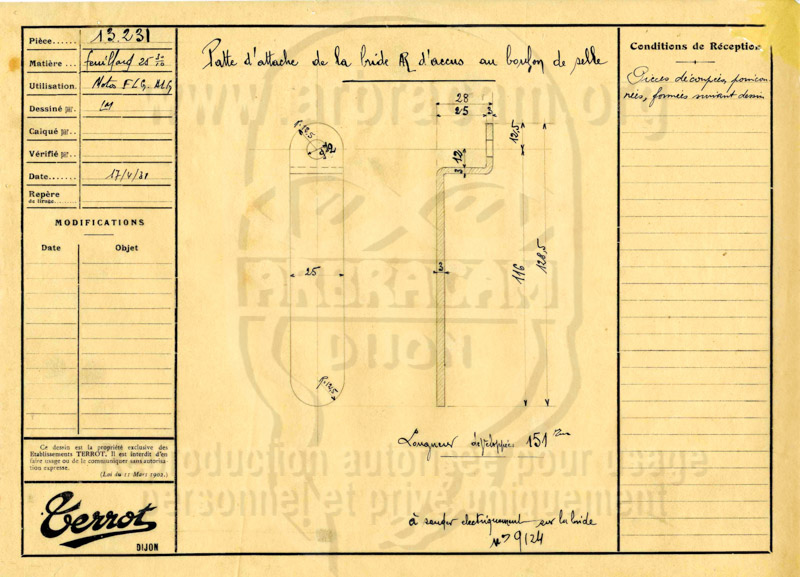 Pièce...... 13.231
Matière... feuillard 25 3/10
Utilisation. Motos FLG. HLG
Dessiné par.
Caiqué par..
Vérifié par..
Date....... 17/4/31
Repère
du tirage
MODIFICATIONS
Date Objet
Ce dessin est la propriété exclusive des
Etablissements TERROT. Il est interdit d'en
faire usage ou de le communiquer sans autorisa-
tion expresse.
(Loi du 11 Mars 1902.)
Terrot
DIJON
Patte d'attache de la bride AR d'accus au boulon de selle
28
25 3
12,5
12
3
r=12,5
25
3
116
128,5
r=12,5
Longueur développée 151 mm
à souder électriquement sur la bride
N° 9124
Conditions de Réception
Pièces découpées, poinçon-
nées, formées suivant dessin
www.arbracam.org
ARBRACAM
DIJON
reproduction autorisée pour usage
personnel et privé uniquement